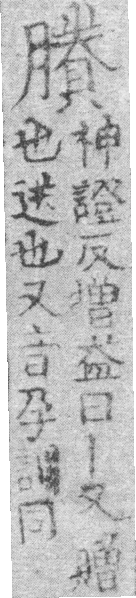 賸
神證反增益曰丨又贈
也送也又音孕訓同